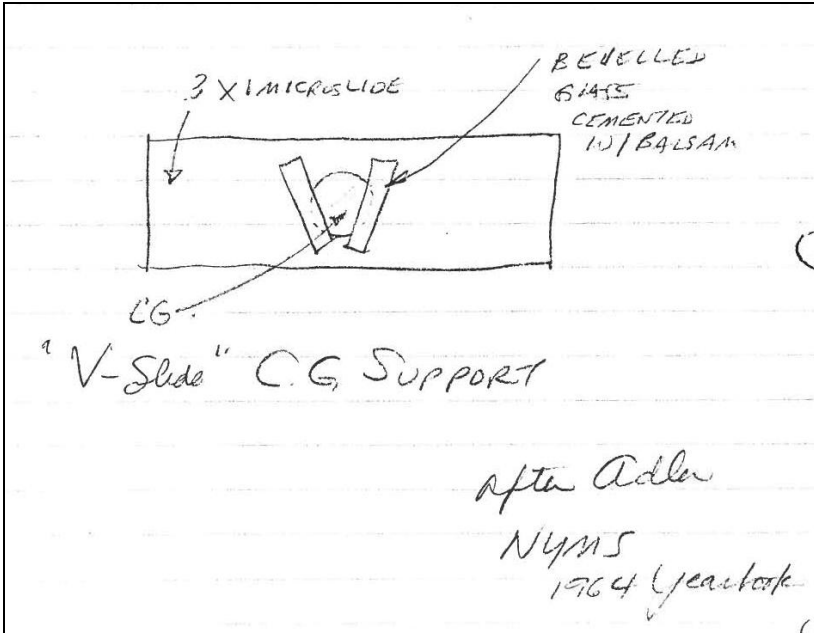 3 X 1 MICROSLIDE
BEVELLED
GLASS
CEMENTED
W/ BALSAM
CG
"V-Slide" C.G. SUPPORT
after Adler
NYMS
1964 Yearbook